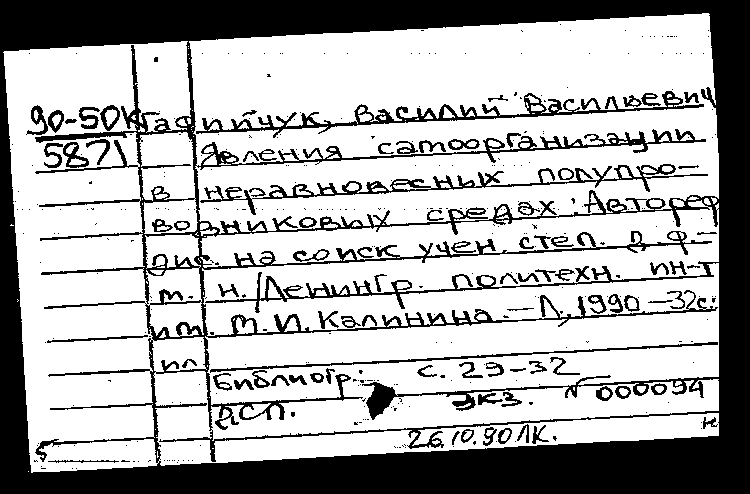 90-50к Гафийчук, Василий Васильевич
5871 Явления самоорганизации
в неравновесных полупро-
водниковых средах: Автореф
дис. на соиск учен. степ. д. ф.-
м. н. / Ленингр. политехн. ин-т
им. М. И. Калинина. – Л, 1990. – 32с.:
ил
Библиогр.: с. 29-32
ДСП. экз. № 000094
26.10.90 ЛК. н
5